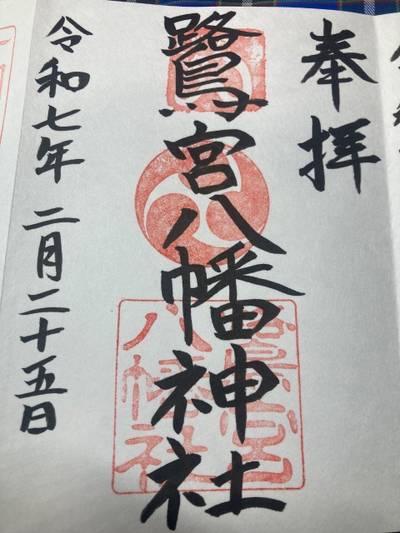 奉拝
鷺宮八幡神社
令和七年 二月二十五日
鷺宮
八幡社